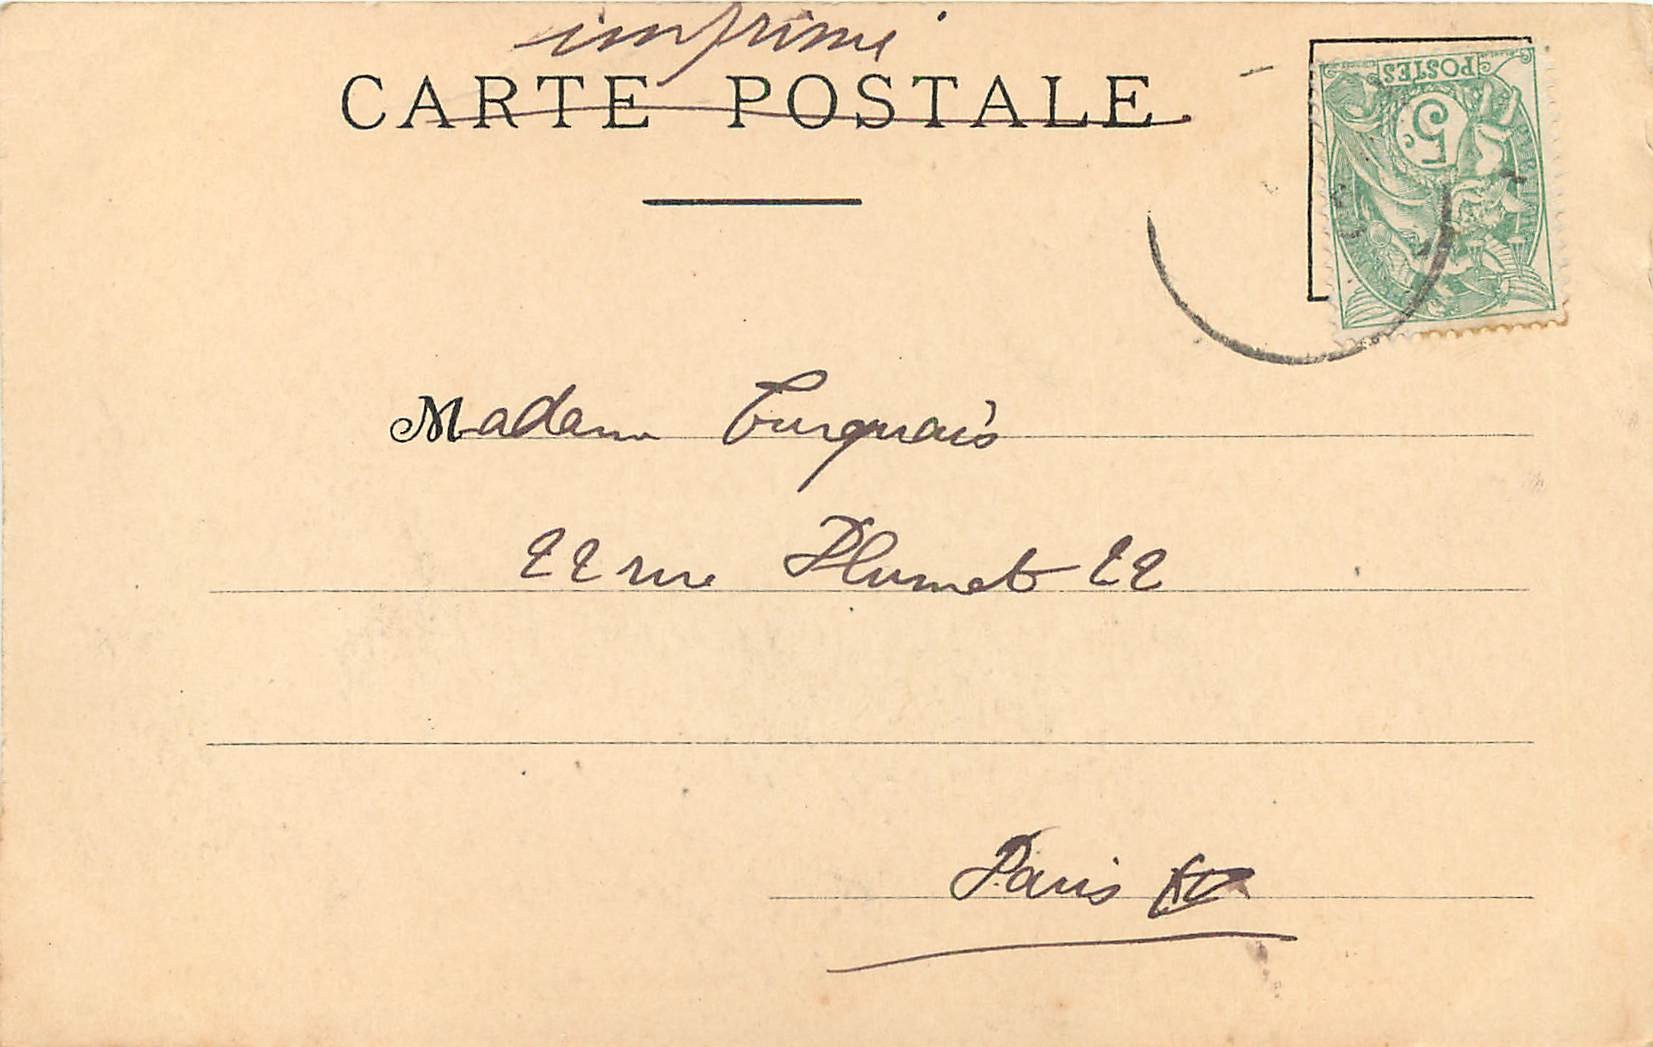 imprimé
CARTE POSTALE
POSTES
5 c.
Madame Turquais
22 rue Plumet 22
Paris XV